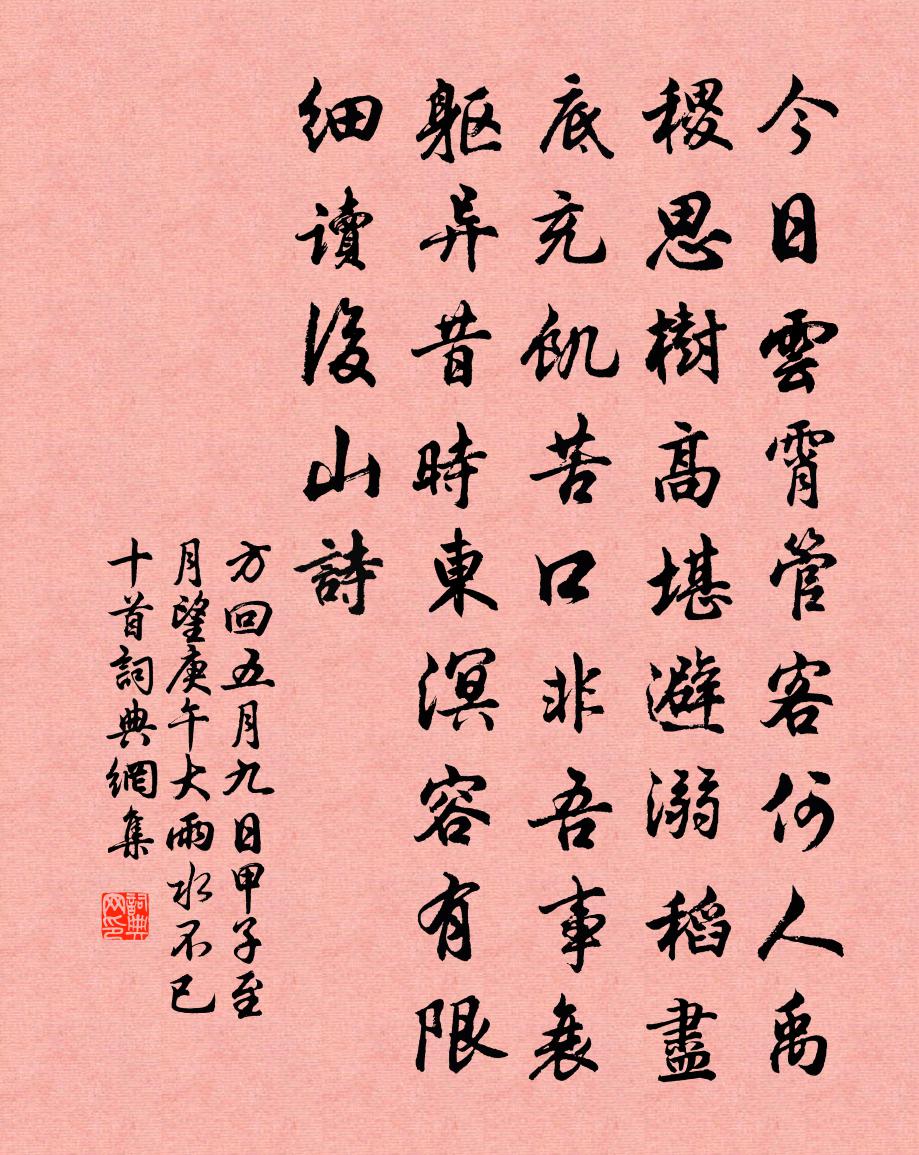 今日雲霄管客何人禹
稷思樹高堪避溺稻盡
底充飢苦口非吾事衰
躯异昔時東溟容有限
細讀後山詩
方回五月九日甲子至
月望庚午大雨水不已
十首詞典網集
詞典
网印